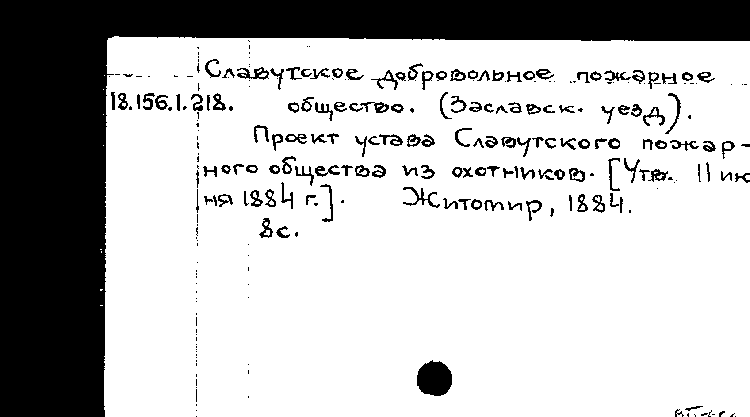 Славутское добровольное пожарное
18.156.1.218. общество. (Заславск. уезд).
Проект устава Славутского пожар-
ного общества из охотников. [Утв. 11 ию
ня 1884 г.]. Житомир, 1884.
8с.